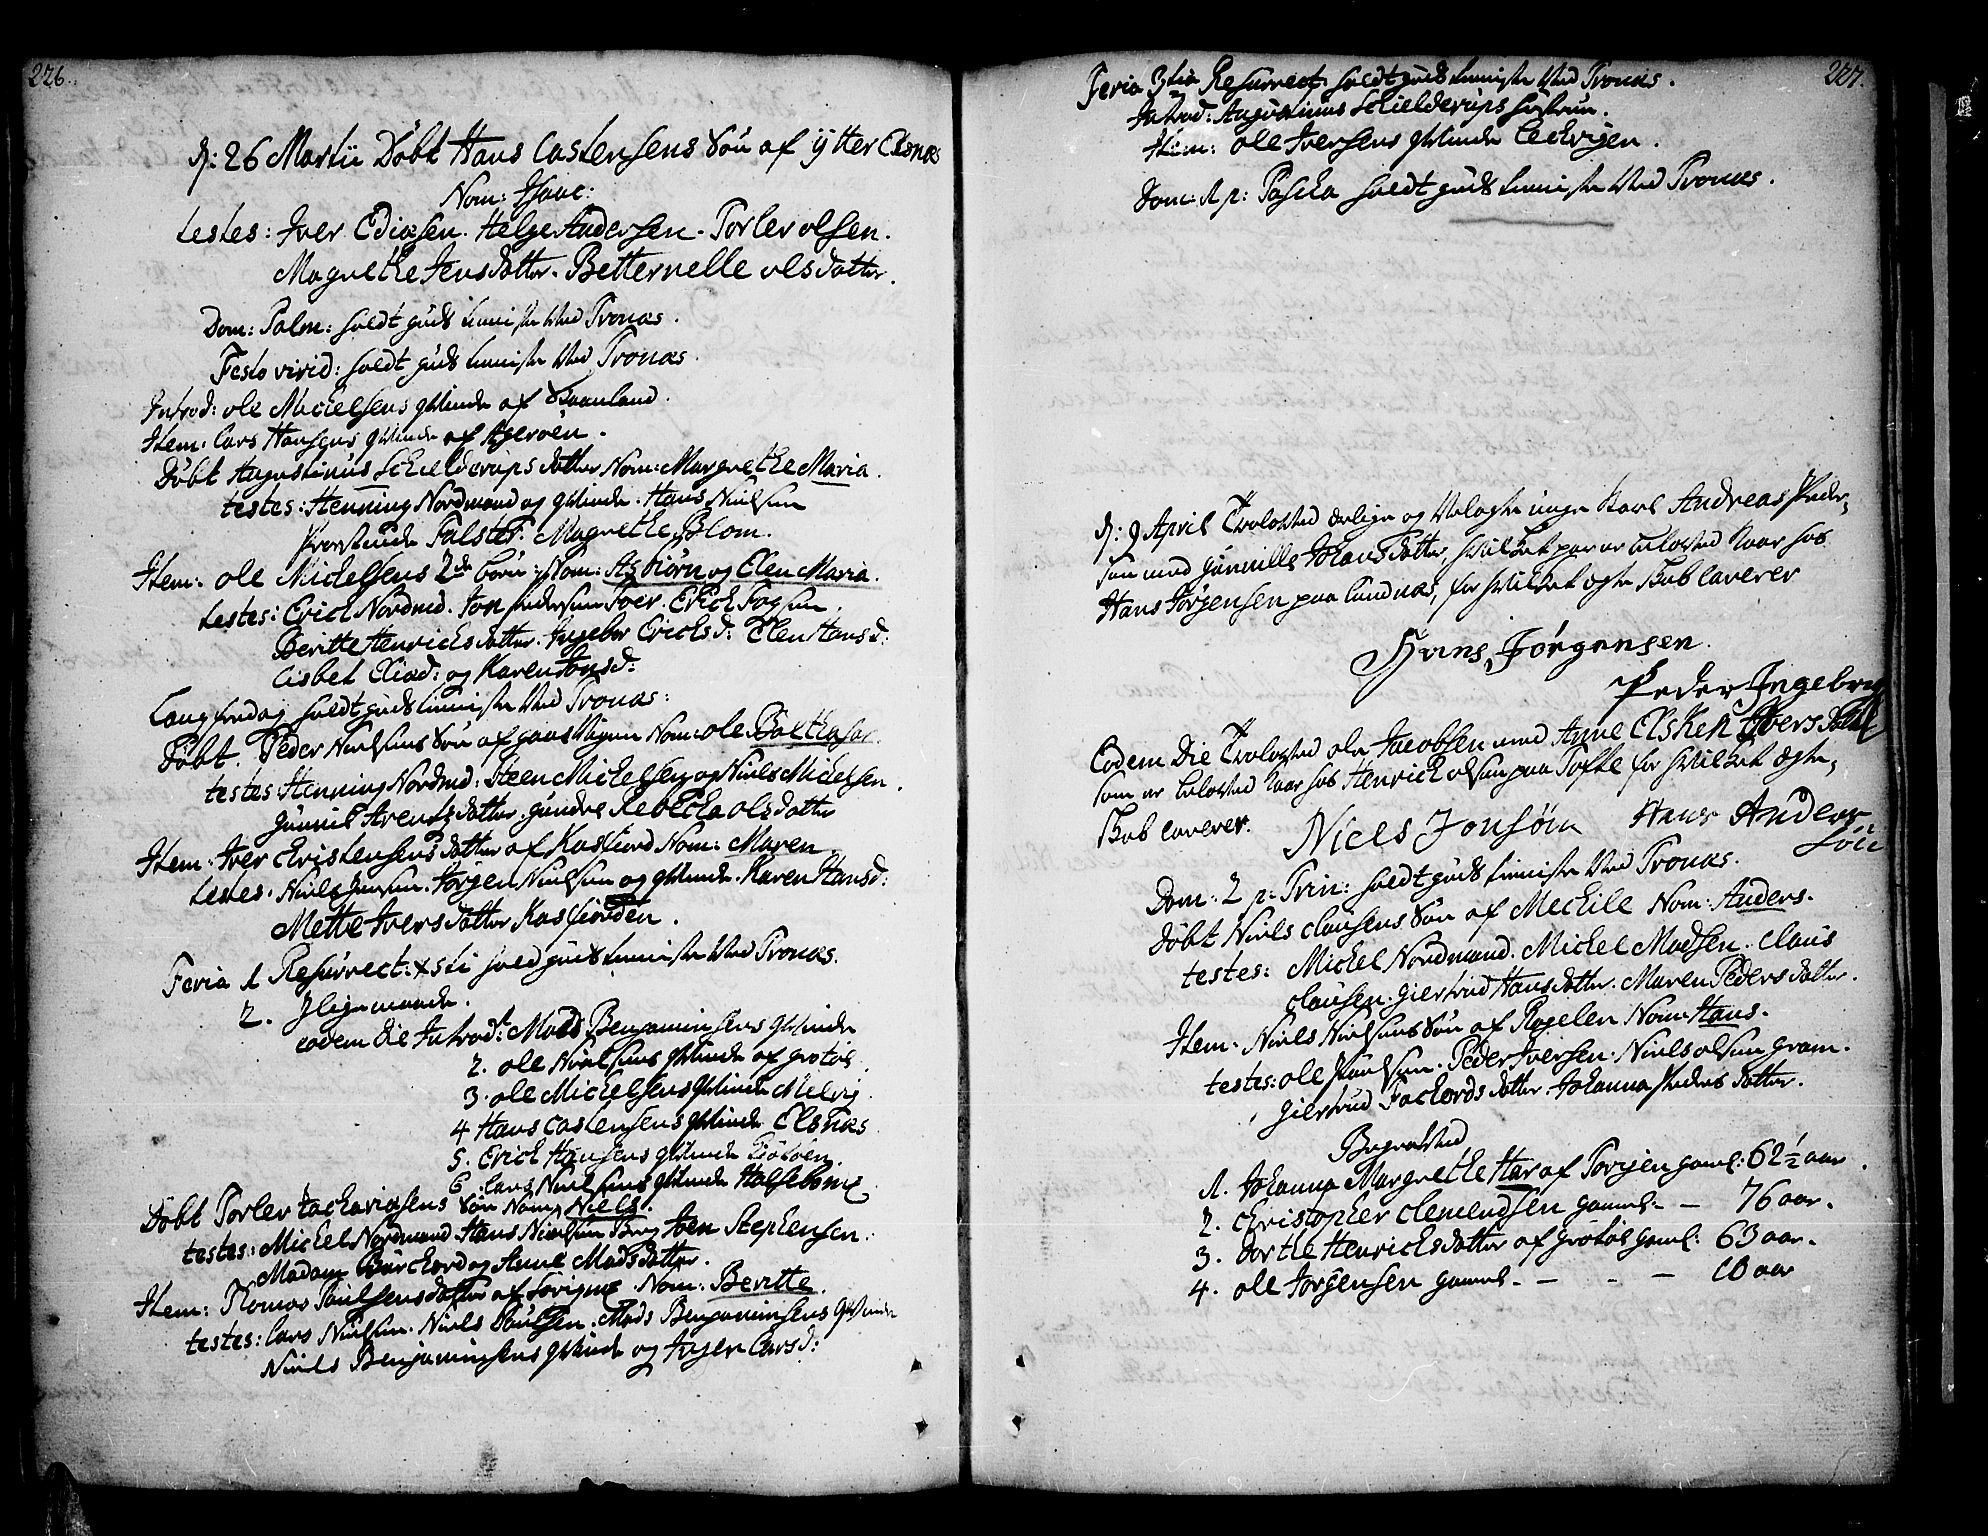 226.
d: 26 Martii Döbt Hans Castensens Sön af ÿtter Elsnæs
Nom: Isaac:
testes: Iver Ediasen. Helge Andersen. Torler olsen.
Magrethe Jensdatter. Betternelle olsdatter.
Dom: Palm: holdt guds tienniste ved Tronæs.
Festo virid: holdt guds tienniste ved Tronæs
Introd: ole Michelsens qvinde af Kaanland.
Item: Lars Hansens qvinde af Ageröen.
Döbt Augustinus Schielderups datter Nom: Margrethe Maria.
testes: Henning Nordmand og qvinde. Hans Nielsen
Falster. Magrethe Blom.
Item: ole Michelsens 2de börn: Nom: Asbiörn og Elen Maria.
testes: Erich Nordmd. Jon Pedersen Toer. Erich Togsen.
Beritte Henrichsdatter. Ingebor Erichsd: Elen Hansd:
Lisbet Eliæd: og Karen Jonsd:
Langfredag holdt guds tienniste ved Tronæs:
Döbt. Peder Nielsens Sön af gaasvigen Nom: ole Balthasar.
testes: Henning Nordmd: Steen Michelsen og Niels Michelsen.
gunnil Arentzdatter. gundre Rebecha olsdatter
Item: Iver Christensens datter af Kasfiord Nom: Maren.
testes. Niels Jensen. Jörgen Nielsen og qvinde. Karen Hansd:
Mette Iversdatter Kasfiorden.
Feria 1 Resurrect: Xsti hold guds tienniste ved Tronæs.
2. Ligemaade.
eodem die Introd: Mads Benjaminsens qvinde
2. ole Nielsens qvinde af grötös
3. ole Michelsens qvinde Melvig
4 Hans Castensens qvinde Elsnæs
5. Erich Hansens qvinde
6. Lars Nielsens qvinde Halsebone
Döbt Torler Zachariasens Sön Nom: Niels.
testes: Michel Nordmand. Hans Nielsen Berg Joen Stephensen.
Madam Burchord og Anne Madsdatter.
Item: Thomas Paulsens datter af Sorigne. Nom: Beritte.
testes: Lars Nielsen. Niels Paulsen. Mads Benjaminsens qvinde
Niels Benjaminsens qvinde og Inger Larsd:
227.
Feria 3tia Resurrect holdt guds tienniste ved Tronæs.
Introd: Augustinus Schielderups hustrue.
Item: ole Iversens qvinde Lechvigen.
Dom: 1 p: Pascha holdt guds tienniste ved Tronæs.
d: 9 April Trolovted ærlige og velagte unge Karl Andreas Peder-
sen med gunnille Johansdatter, hvilket par er trolovted var hos
Hans Jörgensen paa Sandnæs, for hvilket ægte Bab laverer
Hans Jörgensen.
Peder Ingebrig
Eodem Die Trolovted ole Jacobsen med Anne Elsken Iversdatter
som er trolovted var hos Henrich olsen paa Tofte for hvilket ægte
Bab laverer.
Niels Jonsön Hans Anders
Sön
Dom: 2 p: Trin: holdt guds tienniste ved Tronæs.
döbt Niels Clausens Sön af Mechile Nom: Anders.
testes: Michel Nordmand. Michel Madsen. Claus
Clausen. giertrud Hansdatter. Maren Pedersdatter.
Item: Niels Nielsens Sön af Rogelen Nom: Hans.
testes: ole Paulsen. Peder Iversen. Niels olsen gram.
giertrud Fachordsdatter. Johanna Pedersdatter.
Begravted
1. Johanna Margrethe Har af Torgen gaml: 62 1/2 aar.
2. Christopher Clemendsen gaml. — 76 aar.
3. Dortte Henrichsdatter af grötös gaml: 63 aar.
4. ole Jorgensen gaml. — - — 10 aar